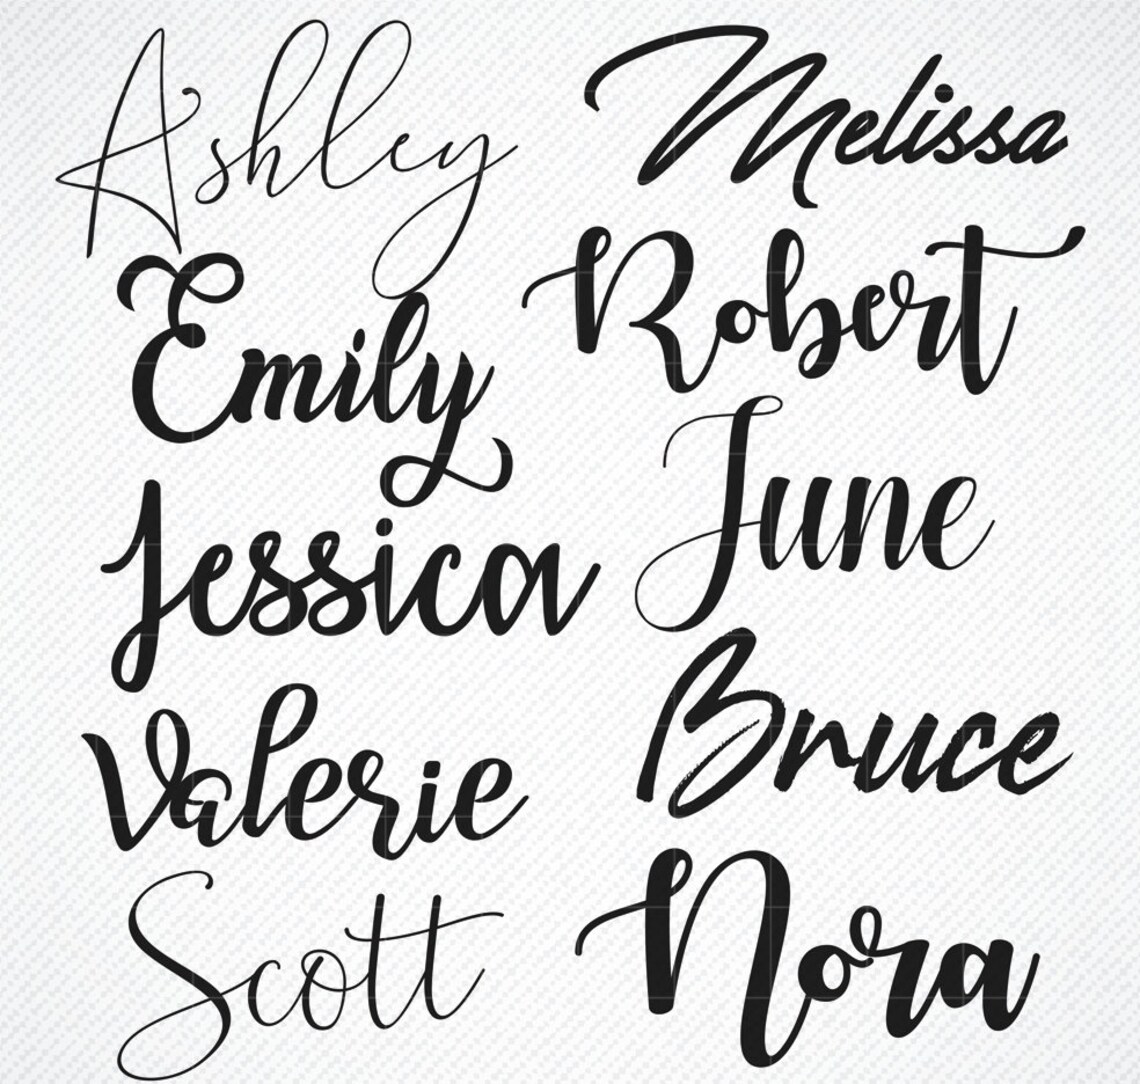 Ashley
Emily
Jessica
Valerie
Scott
Melissa
Robert
June
Bruce
Nora